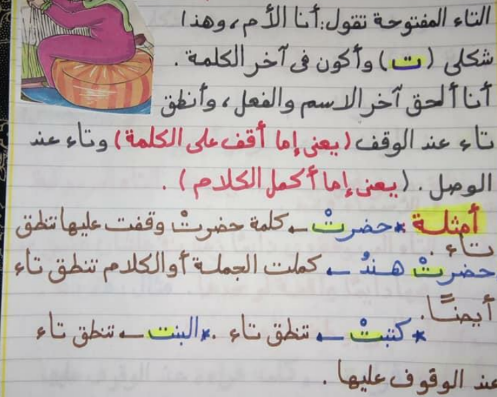 التاء المفتوحة تقول: أنا الأم، وهذا
شكلى (ت) وأكون فى آخر الكلمة.
أنا ألحق آخر الاسم والفعل، وأنطق
تاء عند الوقف (يعنى إما أقف على الكلمة) وتاء عند
الوصل. (يعنى إما أكمل الكلام).
أمثلة * حضرتْ ← كلمة حضرتْ وقفت عليها تنطق
تاء.
حضرتْ هندُ ← كملت الجملة أو الكلام تنطق تاء
أيضًا.
* كتبتْ ← تنطق تاء. * البنت ← تنطق تاء
عند الوقوف عليها.